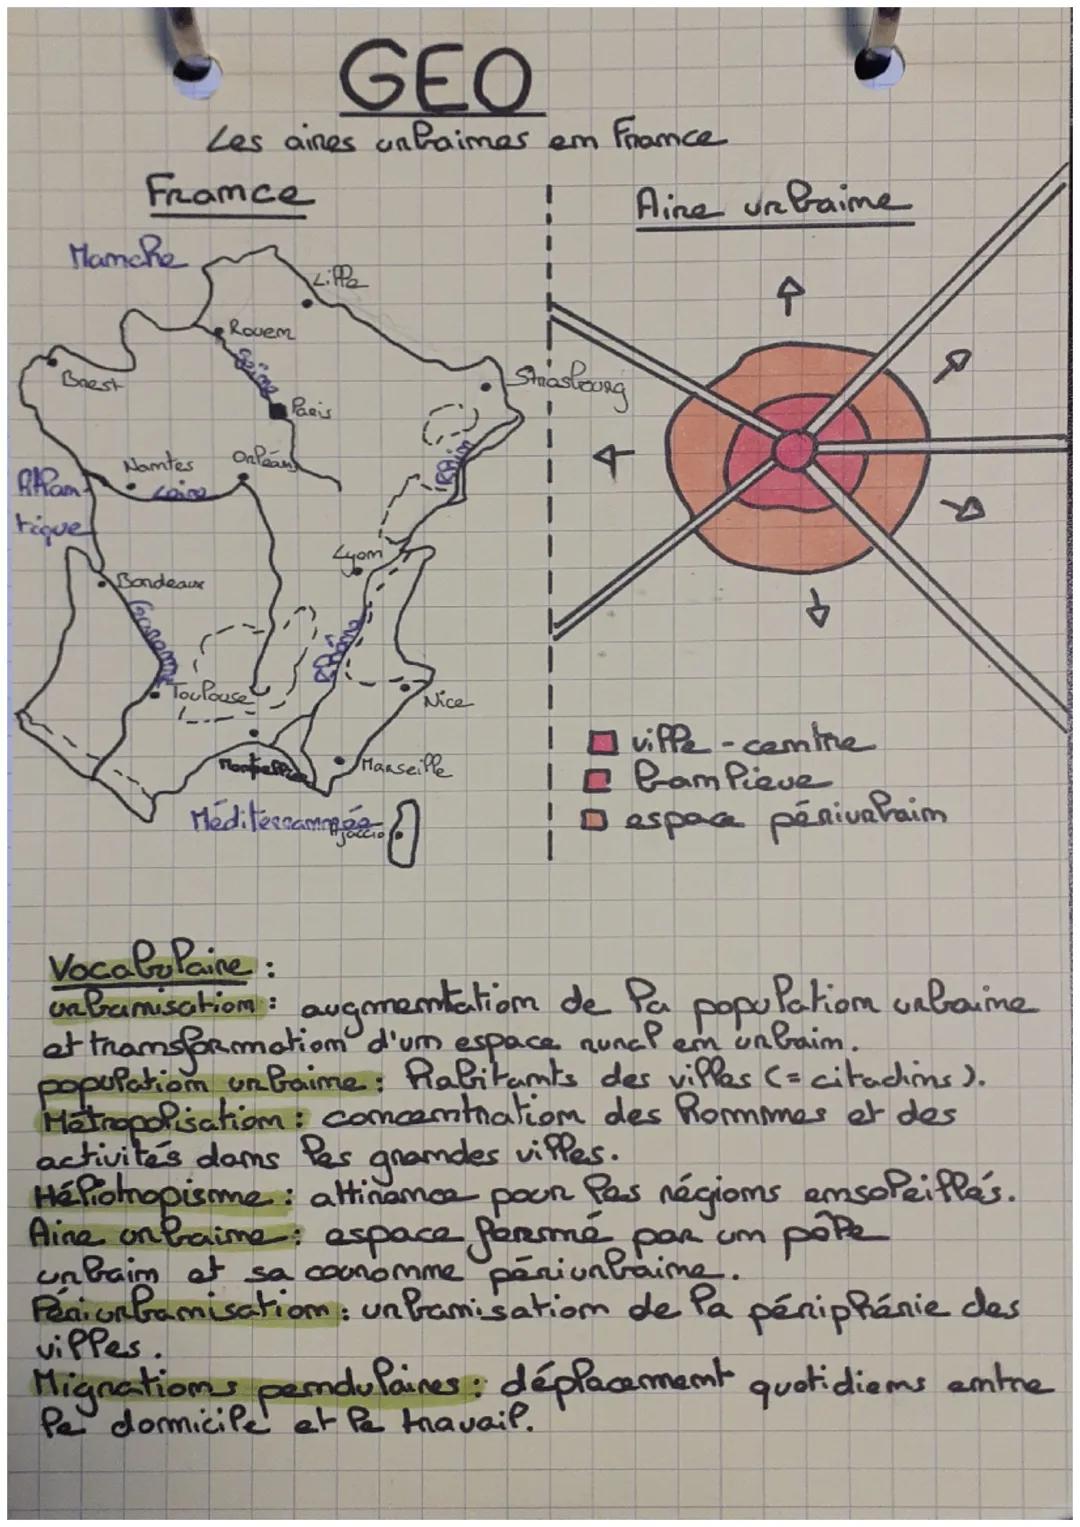 GEO
Les aires urbaines en France
France
Aire urbaine
Manche
Lille
Rouen
Seine
Brest
Paris
Strasbourg
Nantes
Orléans
Loire
Rhin
Atlan-
tique
Lyon
Bordeaux
Garonne
Rhône
Toulouse
Nice
Montpellier
Marseille
Méditerrannée
Ajaccio
ville-centre
banlieue
espace périurbain
Vocabulaire :
urbanisation : augmentation de la population urbaine
et transformation d'un espace rural en urbain.
population urbaine : habitants des villes (= citadins).
Métropolisation : concentration des hommes et des
activités dans les grandes villes.
Héliotropisme : attirance pour les régions ensoleillés.
Aire urbaine : espace formé par un pôle
urbain et sa couronne périurbaine.
Périurbanisation : urbanisation de la périphérie des
villes.
Migrations pendulaires : déplacement quotidiens entre
le domicile et le travail.